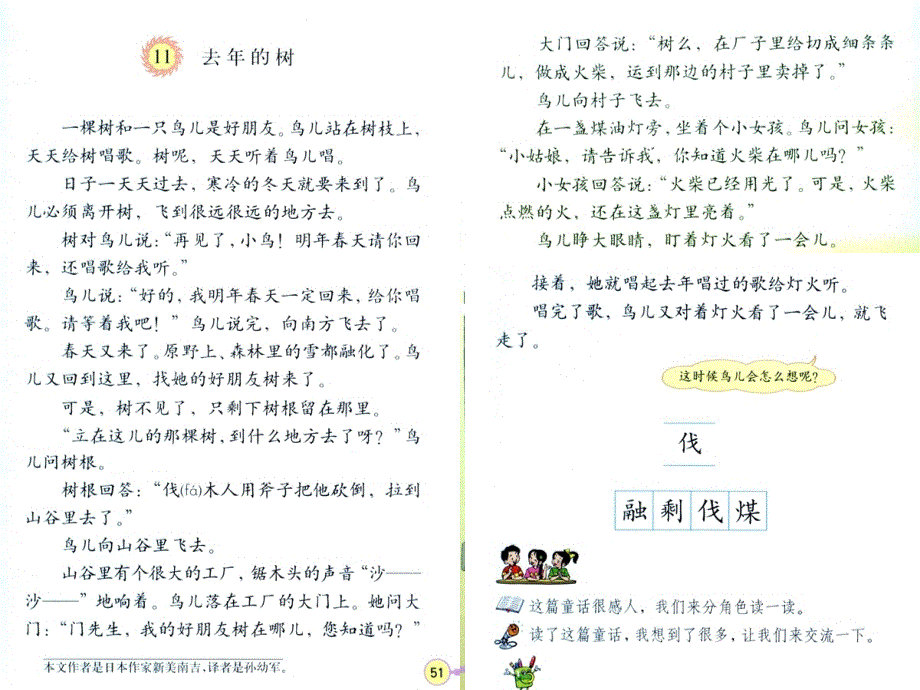 11 去年的树
一棵树和一只鸟儿是好朋友。鸟儿站在树枝上，
天天给树唱歌。树呢，天天听着鸟儿唱。
日子一天天过去，寒冷的冬天就要来到了。鸟
儿必须离开树，飞到很远很远的地方去。
树对鸟儿说：“再见了，小鸟！明年春天请你回
来，还唱歌给我听。”
鸟儿说：“好的，我明年春天一定回来，给你唱
歌。请等着我吧！”鸟儿说完，向南方飞去了。
春天又来了。原野上、森林里的雪都融化了。鸟
儿又回到这里，找她的好朋友树来了。
可是，树不见了，只剩下树根留在那里。
“立在这儿的那棵树，到什么地方去了呀？”鸟
儿问树根。
树根回答：“伐(fá)木人用斧子把他砍倒，拉到
山谷里去了。”
鸟儿向山谷里飞去。
山谷里有个很大的工厂，锯木头的声音“沙——
沙——”地响着。鸟儿落在工厂的大门上。她问大
门：“门先生，我的好朋友树在哪儿，您知道吗？”
本文作者是日本作家新美南吉，译者是孙幼军。
51
大门回答说：“树么，在厂子里给切成细条条
儿，做成火柴，运到那边的村子里卖掉了。”
鸟儿向村子飞去。
在一盏煤油灯旁，坐着个小女孩。鸟儿问女孩：
“小姑娘，请告诉我，你知道火柴在哪儿吗？”
小女孩回答说：“火柴已经用光了。可是，火柴
点燃的火，还在这盏灯里亮着。”
鸟儿睁大眼睛，盯着灯火看了一会儿。
接着，她就唱起去年唱过的歌给灯火听。
唱完了歌，鸟儿又对着灯火看了一会儿，就飞
走了。
这时候鸟儿会怎么想呢？
伐
融剩伐煤
这篇童话很感人，我们来分角色读一读。
读了这篇童话，我想到了很多，让我们来交流一下。